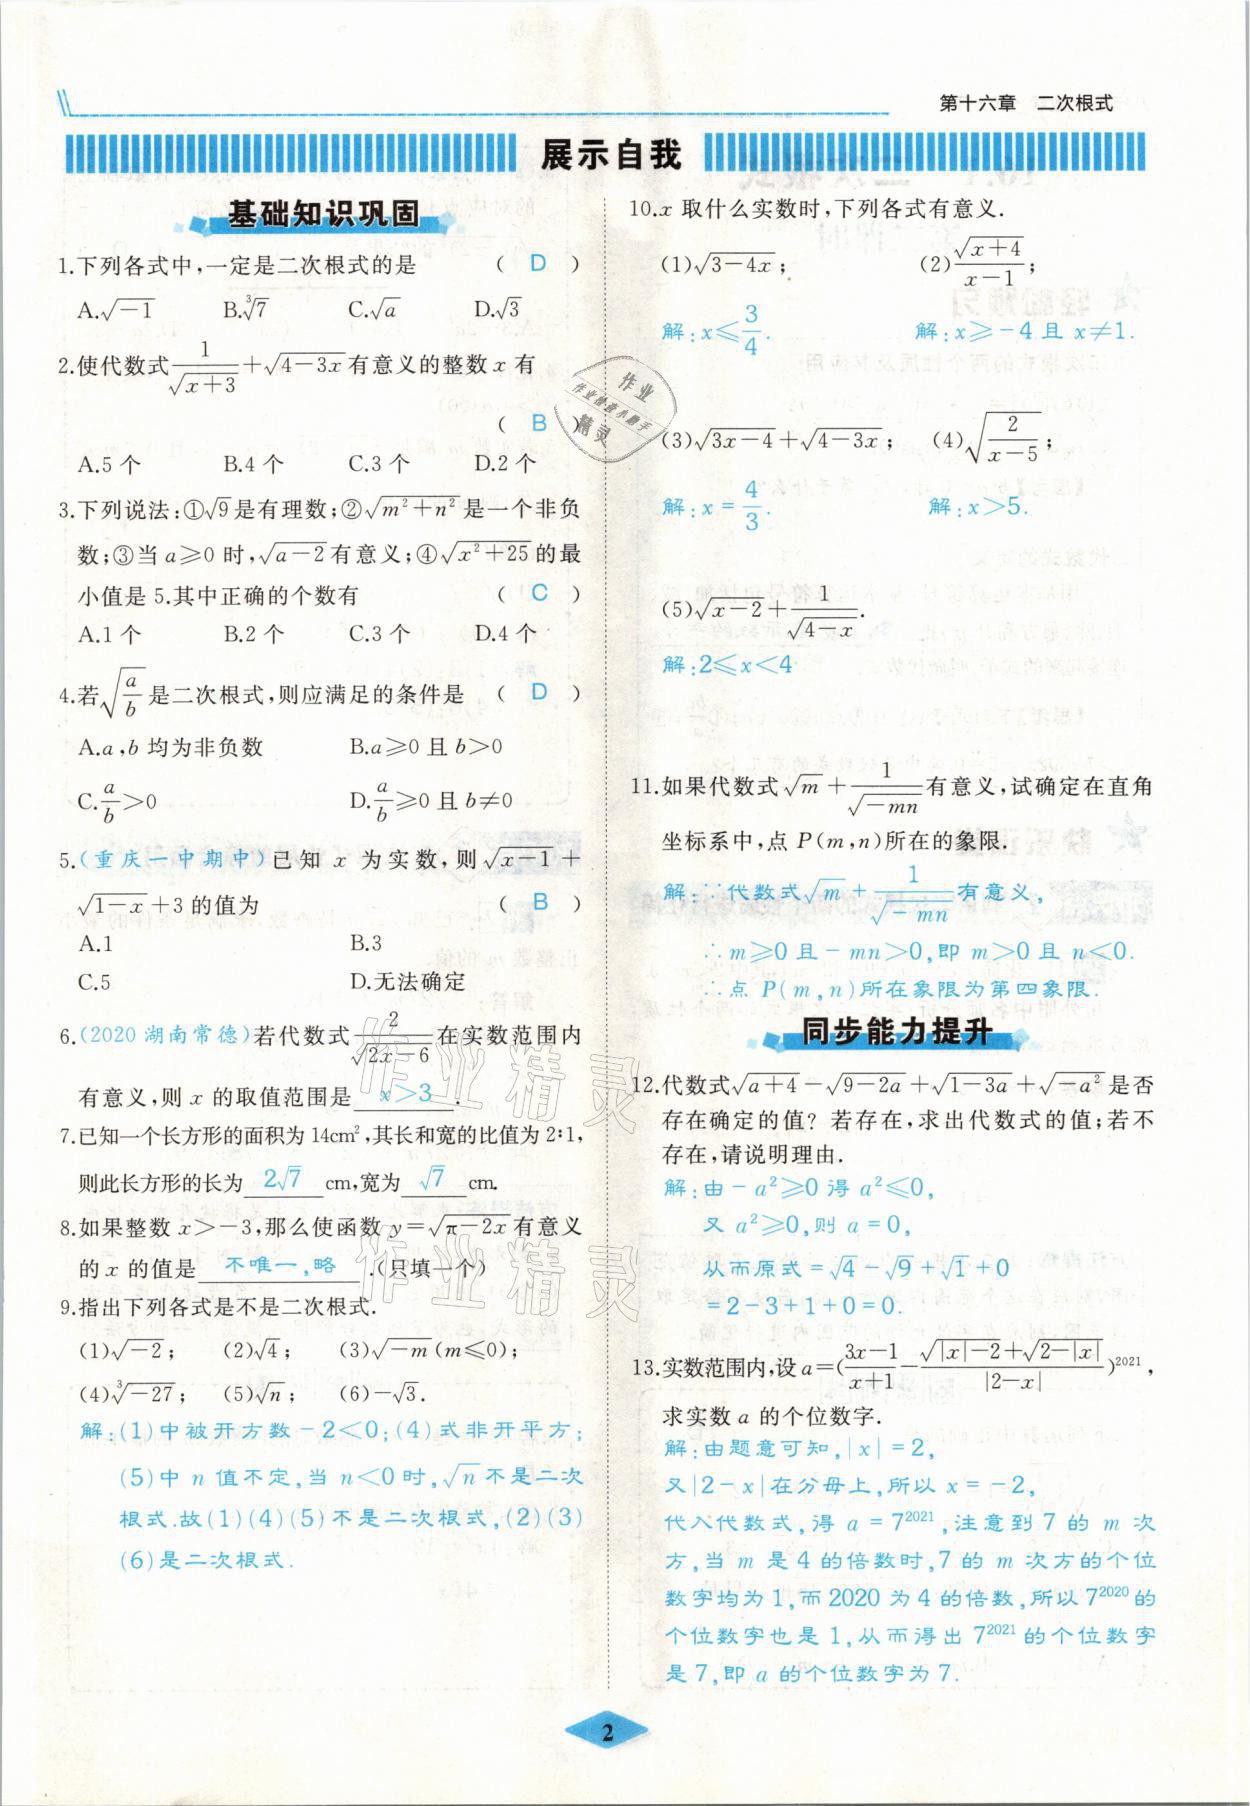 第十六章 二次根式
展示自我
基础知识巩固
1.下列各式中,一定是二次根式的是 ( D )
A.√(-1) B.∛7 C.√a D.√3
2.使代数式 1/√(x+3) + √(4-3x) 有意义的整数 x 有
( B )
A.5 个 B.4 个 C.3 个 D.2 个
3.下列说法:①√9是有理数;②√(m²+n²)是一个非负
数;③当 a≥0 时,√(a-2)有意义;④√(x²+25)的最
小值是 5.其中正确的个数有 ( C )
A.1 个 B.2 个 C.3 个 D.4 个
4.若√(a/b)是二次根式,则应满足的条件是 ( D )
A.a,b 均为非负数 B.a≥0 且 b>0
C.a/b>0 D.a/b≥0 且 b≠0
5.(重庆一中期中)已知 x 为实数,则√(x-1)+
√(1-x)+3 的值为 ( B )
A.1 B.3
C.5 D.无法确定
6.(2020 湖南常德)若代数式 2/√(2x-6) 在实数范围内
有意义,则 x 的取值范围是 x>3 .
7.已知一个长方形的面积为 14cm²,其长和宽的比值为 2:1,
则此长方形的长为 2√7 cm,宽为 √7 cm.
8.如果整数 x>-3,那么使函数 y=√(π-2x)有意义
的 x 的值是 不唯一,略 .(只填一个)
9.指出下列各式是不是二次根式.
(1)√(-2); (2)√4; (3)√(-m)(m≤0);
(4)∛(-27); (5)√n; (6)-√3.
解:(1)中被开方数-2<0;(4)式非开平方;
(5)中 n 值不定,当 n<0时,√n不是二次
根式.故(1)(4)(5)不是二次根式,(2)(3)
(6)是二次根式.
10.x 取什么实数时,下列各式有意义.
(1)√(3-4x); (2)√(x+4)/(x-1);
解:x≤3/4. 解:x≥-4 且 x≠1.
(3)√(3x-4)+√(4-3x); (4)√(2/(x-5));
解:x=4/3. 解:x>5.
(5)√(x-2)+1/√(4-x).
解:2≤x<4
11.如果代数式√m+1/√(-mn)有意义,试确定在直角
坐标系中,点 P(m,n)所在的象限.
解:∵代数式√m+1/√(-mn)有意义,
∴m≥0 且-mn>0,即 m>0 且 n<0.
∴点 P(m,n)所在象限为第四象限.
同步能力提升
12.代数式√(a+4)-√(9-2a)+√(1-3a)+√(-a²)是否
存在确定的值?若存在,求出代数式的值;若不
存在,请说明理由.
解:由-a²≥0 得 a²≤0,
又 a²≥0,则 a=0,
从而原式=√4-√9+√1+0
=2-3+1+0=0.
13.实数范围内,设 a=((3x-1)/(x+1)-(√(|x|-2)+√(2-|x|))/|2-x|)²⁰²¹,
求实数 a 的个位数字.
解:由题意可知,|x|=2,
又|2-x|在分母上,所以 x=-2,
代入代数式,得 a=7²⁰²¹,注意到 7 的 m 次
方,当 m 是 4 的倍数时,7 的 m 次方的个位
数字均为 1,而 2020 为 4 的倍数,所以 7²⁰²⁰ 的
个位数字也是 1,从而得出 7²⁰²¹ 的个位数字
是 7,即 a 的个位数字为 7.
作业精灵
作业精灵
作业
精灵
2